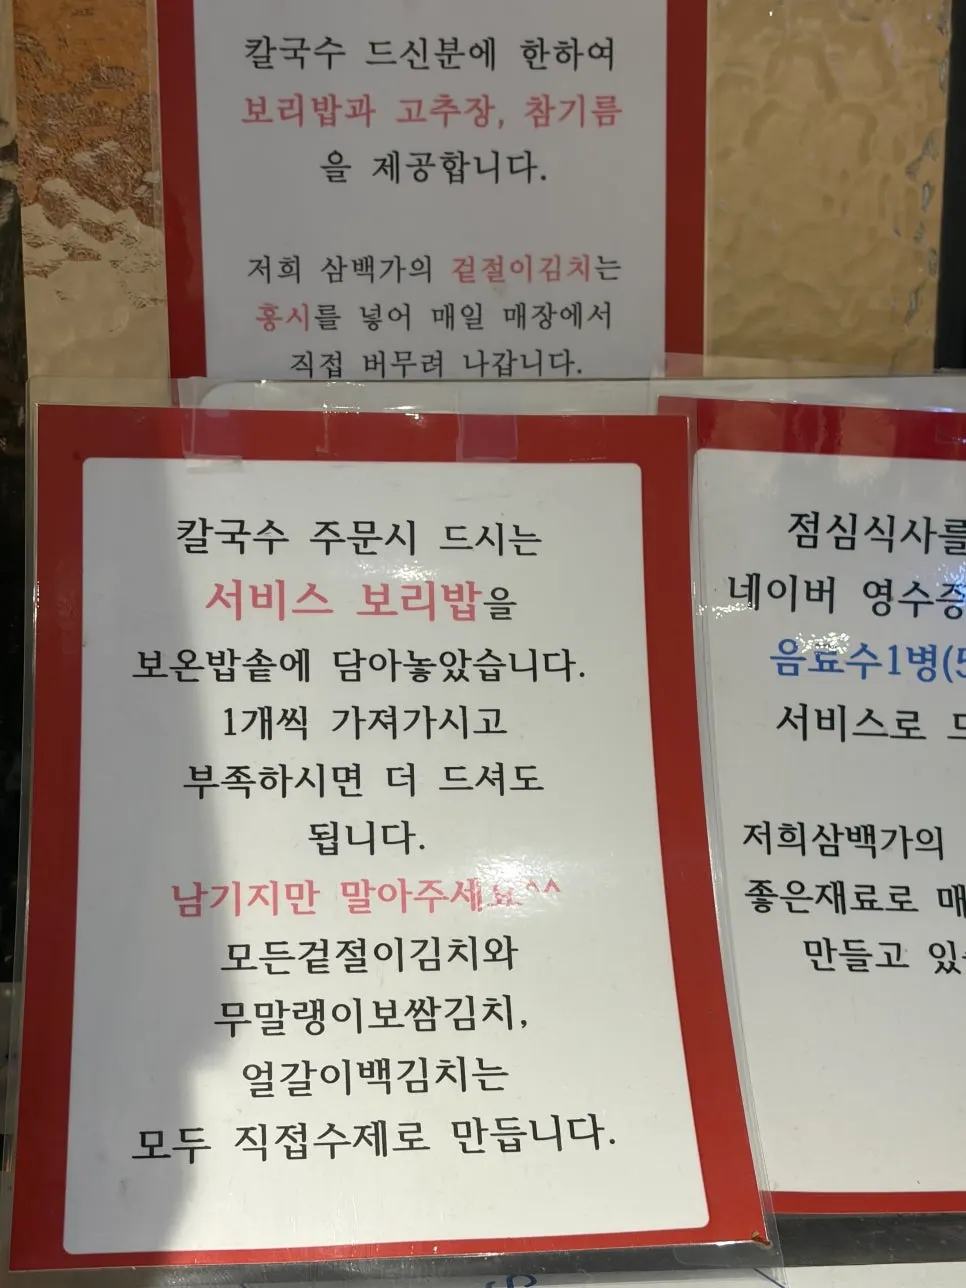 칼국수 드신분에 한하여
보리밥과 고추장, 참기름
을 제공합니다.
저희 삼백가의 겉절이김치는
홍시를 넣어 매일 매장에서
직접 버무려 나갑니다.
칼국수 주문시 드시는
서비스 보리밥을
보온밥솥에 담아놓았습니다.
1개씩 가져가시고
부족하시면 더 드셔도
됩니다.
남기지만 말아주세요^^
모든겉절이김치와
무말랭이보쌈김치,
얼갈이백김치는
모두 직접수제로 만듭니다.
점심식사를
네이버 영수증
음료수1병(5
서비스로
저희삼백가의
좋은재료로 매
만들고